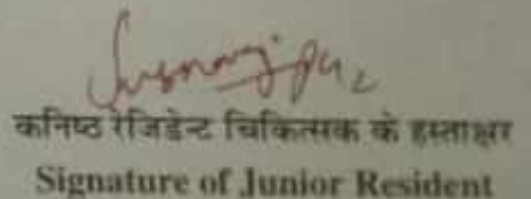 कनिष्ठ रेजिडेन्ट चिकित्सक के हस्ताक्षर
Signature of Junior Resident